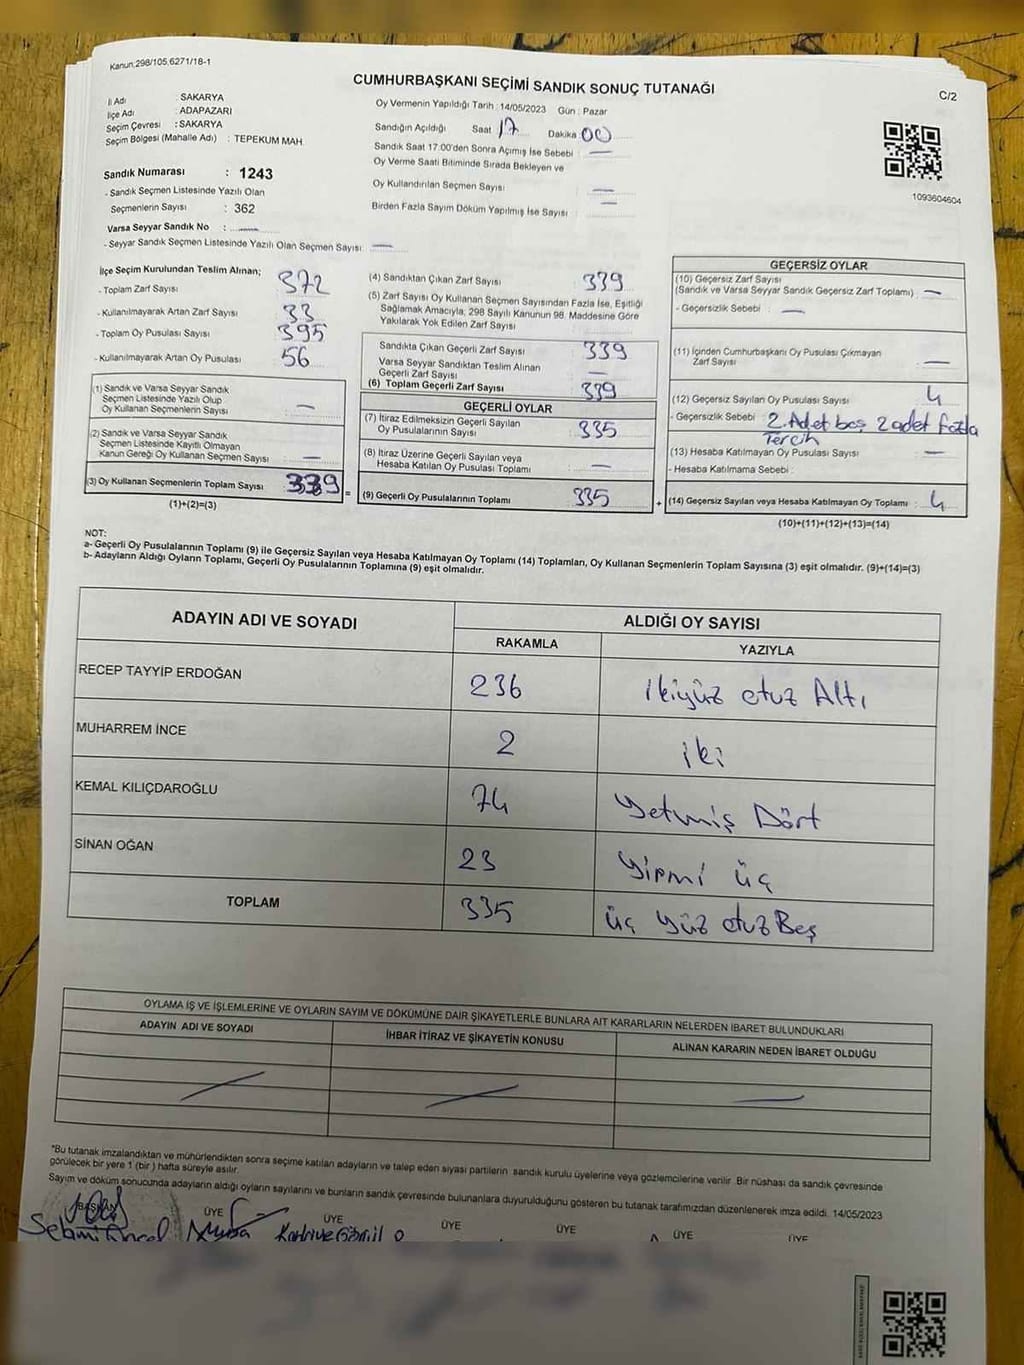 Kanun.298/105,6271/18-1
CUMHURBAŞKANI SEÇİMİ SANDIK SONUÇ TUTANAĞI
C/2
İl Adı : SAKARYA
İlçe Adı : ADAPAZARI
Seçim Çevresi : SAKARYA
Seçim Bölgesi (Mahalle Adı) : TEPEKUM MAH.
Sandık Numarası : 1243
- Sandık Seçmen Listesinde Yazılı Olan
Seçmenlerin Sayısı : 362
Varsa Seyyar Sandık No : —
- Seyyar Sandık Seçmen Listesinde Yazılı Olan Seçmen Sayısı: —
Oy Vermenin Yapıldığı Tarih : 14/05/2023 Gün : Pazar
Sandığın Açıldığı Saat 17 Dakika 00
Sandık Saat 17:00'den Sonra Açımış İse Sebebi : —
Oy Verme Saati Bitiminde Sırada Bekleyen ve
Oy Kullandırılan Seçmen Sayısı : —
Birden Fazla Sayım Döküm Yapılmış İse Sayısı : —
1093604604
İlçe Seçim Kurulundan Teslim Alınan;
- Toplam Zarf Sayısı : 372
- Kullanılmayarak Artan Zarf Sayısı : 33
- Toplam Oy Pusulası Sayısı : 395
- Kullanılmayarak Artan Oy Pusulası : 56
(1) Sandık ve Varsa Seyyar Sandık
Seçmen Listesinde Yazılı Olup
Oy Kullanan Seçmenlerin Sayısı : —
(2) Sandık ve Varsa Seyyar Sandık
Seçmen Listesinde Kayıtlı Olmayan
Kanun Gereği Oy Kullanan Seçmen Sayısı : —
(3) Oy Kullanan Seçmenlerin Toplam Sayısı : 339 =
(1)+(2)=(3)
(4) Sandıktan Çıkan Zarf Sayısı : 339
(5) Zarf Sayısı Oy Kullanan Seçmen Sayısından Fazla İse, Eşitliği
Sağlamak Amacıyla, 298 Sayılı Kanunun 98. Maddesine Göre
Yakılarak Yok Edilen Zarf Sayısı :
Sandıkta Çıkan Geçerli Zarf Sayısı : 339
Varsa Seyyar Sandıktan Teslim Alınan
Geçerli Zarf Sayısı : —
(6) Toplam Geçerli Zarf Sayısı : 339
GEÇERLİ OYLAR
(7) İtiraz Edilmeksizin Geçerli Sayılan
Oy Pusulalarının Sayısı : 335
(8) İtiraz Üzerine Geçerli Sayılan veya
Hesaba Katılan Oy Pusulası Toplamı : —
(9) Geçerli Oy Pusulalarının Toplamı : 335 +
GEÇERSİZ OYLAR
(10) Geçersiz Zarf Sayısı
(Sandık ve Varsa Seyyar Sandık Geçersiz Zarf Toplamı) : —
- Geçersizlik Sebebi : —
(11) İçinden Cumhurbaşkanı Oy Pusulası Çıkmayan
Zarf Sayısı : —
(12) Geçersiz Sayılan Oy Pusulası Sayısı : 4
- Geçersizlik Sebebi : 2 Adet boş 2 adet fazla
Tercih
(13) Hesaba Katılmayan Oy Pusulası Sayısı : —
- Hesaba Katılmama Sebebi :
(14) Geçersiz Sayılan veya Hesaba Katılmayan Oy Toplamı : 4
(10)+(11)+(12)+(13)=(14)
NOT:
a- Geçerli Oy Pusulalarının Toplamı (9) ile Geçersiz Sayılan veya Hesaba Katılmayan Oy Toplamı (14) Toplamları, Oy Kullanan Seçmenlerin Toplam Sayısına (3) eşit olmalıdır. (9)+(14)=(3)
b- Adayların Aldığı Oyların Toplamı, Geçerli Oy Pusulalarının Toplamına (9) eşit olmalıdır.
ADAYIN ADI VE SOYADI
ALDIĞI OY SAYISI
RAKAMLA YAZIYLA
RECEP TAYYİP ERDOĞAN 236 ikiyüz otuz Altı
MUHARREM İNCE 2 iki
KEMAL KILIÇDAROĞLU 74 Yetmiş Dört
SİNAN OĞAN 23 Yirmi üç
TOPLAM 335 üç yüz otuz Beş
OYLAMA İŞ VE İŞLEMLERİNE VE OYLARIN SAYIM VE DÖKÜMÜNE DAİR ŞİKAYETLERLE BUNLARA AİT KARARLARIN NELERDEN İBARET BULUNDUKLARI
ADAYIN ADI VE SOYADI İHBAR İTİRAZ VE ŞİKAYETİN KONUSU ALINAN KARARIN NEDEN İBARET OLDUĞU
*Bu tutanak imzalandıktan ve mühürlendikten sonra seçime katılan adayların ve talep eden siyasi partilerin sandık kurulu üyelerine veya gözlemcilerine verilir. Bir nüshası da sandık çevresinde
görülecek bir yere 1 (bir) hafta süreyle asılır.
Sayım ve döküm sonucunda adayların aldığı oyların sayılarını ve bunların sandık çevresinde bulunanlara duyurulduğunu gösteren bu tutanak tarafımızdan düzenlenerek imza edildi. 14/05/2023
BAŞKAN ÜYE ÜYE ÜYE ÜYE ÜYE ÜYE
Musa